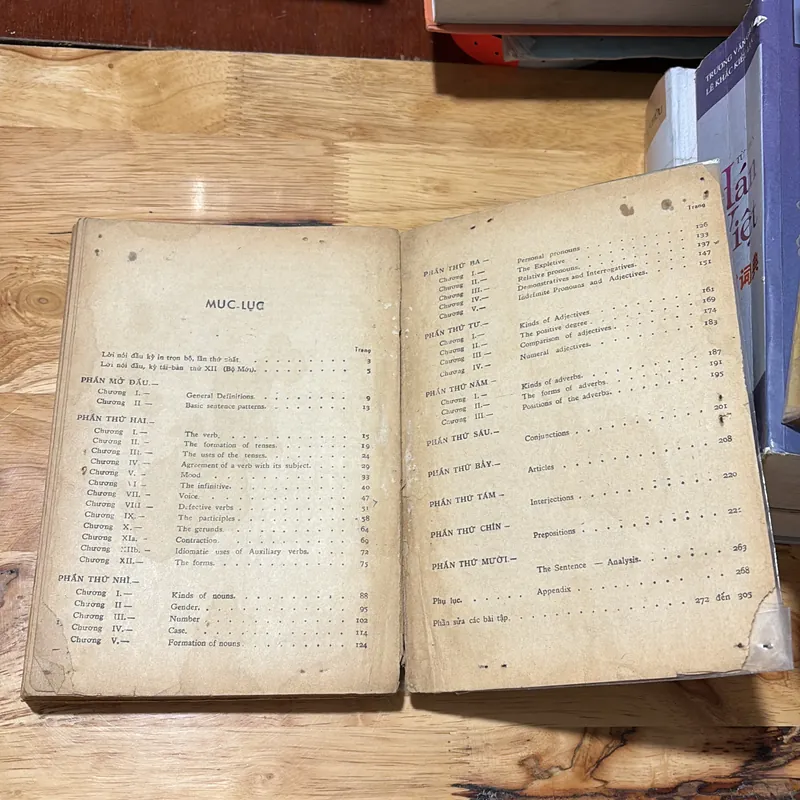 MỤC-LỤC
Trang
Lời nói đầu kỳ in trọn bộ, lần thứ nhất. 3
Lời nói đầu, kỳ tái-bản thứ XII (Bộ Mới). 5
PHẦN MỞ ĐẦU.—
Chương I.— General Definitions. 9
Chương II Basic sentence patterns. 13
PHẦN THỨ HAI.—
Chương I.— The verb. 15
Chương II.— The formation of tenses. 19
Chương III.— The uses of the tenses. 24
Chương IV.— Agreement of a verb with its subject. 29
Chương V.— Mood 33
Chương VI The infinitive. 40
Chương VII.— Voice. 47
Chương VIII Defective verbs 51
Chương IX.— The participles 58
Chương X.— The gerunds. 64
Chương XIa.— Contraction. 69
Chương XIIb.— Idiomatic uses of Auxiliary verbs. 72
Chương XII.— The forms. 75
PHẦN THỨ NHÌ.—
Chương I.— Kinds of nouns. 88
Chương II — Gender. 95
Chương III.— Number 102
Chương IV.— Case. 114
Chương V.— Formation of nouns 124
Trang
PHẦN THỨ BA —
Chương I.— Personal pronouns 126
Chương II.— The Expletive 133
Chương III.— Relative pronouns. 137
Chương IV.— Demonstratives and Interrogatives. 147
Chương V.— Indefinite Pronouns and Adjectives. 151
PHẦN THỨ TƯ.—
Chương I.— Kinds of Adjectives 161
Chương II.— The positive degree 169
Chương III — Comparison of adjectives. 174
Chương IV.— Numeral adjectives. 183
PHẦN THỨ NĂM —
Chương I.— Kinds of adverbs. 187
Chương II.— The forms of adverbs. 191
Chương III.— Positions of the adverbs. 195
PHẦN THỨ SÁU.— Conjunctions 201
PHẦN THỨ BẢY.— Articles 208
PHẦN THỨ TÁM — Interjections 220
PHẦN THỨ CHÍN — Prepositions 221
PHẦN THỨ MƯỜI.— The Sentence — Analysis. 263
Phụ lục. Appendix 268
Phần sửa các bài tập. 272 đến 305
TRƯƠNG VĂN
LÊ KHẮC KIỀU
Hán
Việt